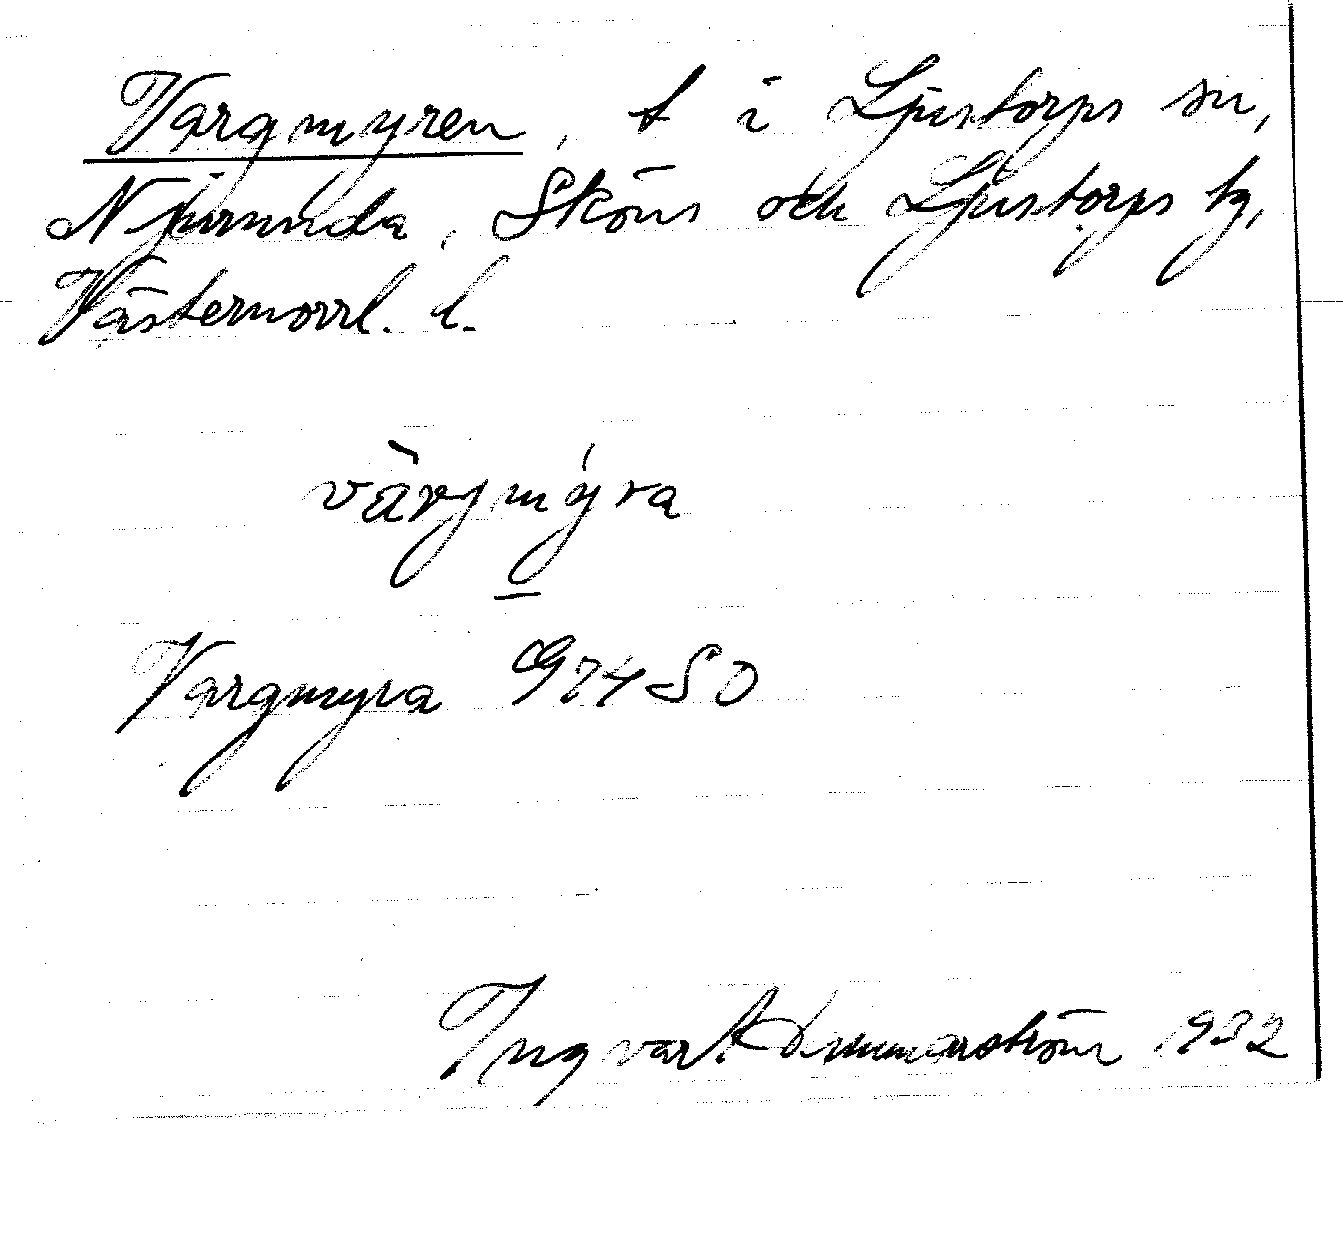 Vargmyren, t i Ljustorps sn,
Njurunda, Sköns och Ljustorps tg,
Västernorrl. l.
várjmýra
Vargmyra GTK SO
Ingvar 1932